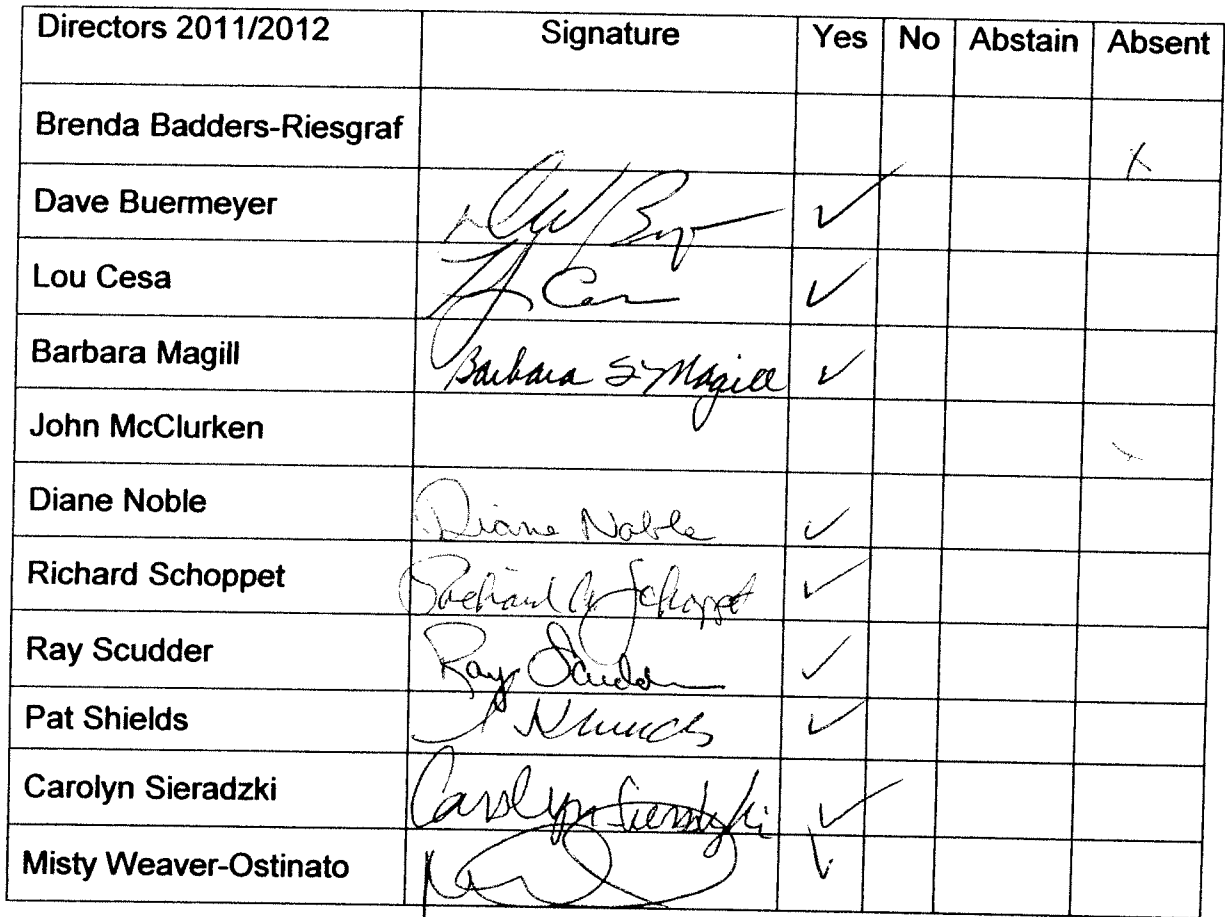 Directors 2011/2012 Signature Yes No Abstain Absent
Brenda Badders-Riesgraf X
Dave Buermeyer ✓
Lou Cesa ✓
Barbara Magill Barbara S Magill ✓
John McClurken
Diane Noble Diane Noble ✓
Richard Schoppet Richard A Schoppet ✓
Ray Scudder Ray Scudder ✓
Pat Shields ✓
Carolyn Sieradzki Carolyn Sieradzki ✓
Misty Weaver-Ostinato ✓